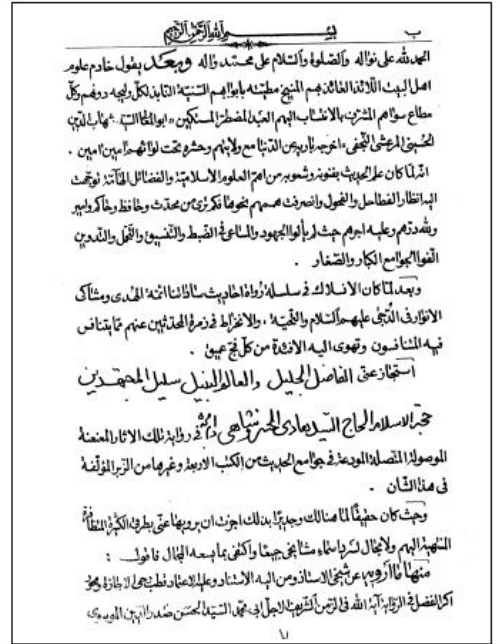 ب بسم الله الرحمن الرحيم
الحمد لله على نواله والصلوة والسلام على محمد واله وبعد يقول خادم علوم
اهل البيت اللائذ العائذ بهم المنيخ مطيته بابوابهم السنية النابذ لكل وليجة دونهم وكل
مطاع سواهم المتشرف بالانتساب اليهم العبد المضطر المستكين ابو المعالي السيد شهاب الدين
الحسيني المرعشي النجفي، اخرجه ربه من الدنيا مع ولايتهم وحشره تحت لوائهم امين امين .
انه لما كان علم الحديث بفنونه وشعوبه من اهم العلوم الاسلامية والفضائل توجهت
اليه انظار الفطاحل والفحول وانصرفت هممهم نحوها فكم ترى من محدث وحافظ وحاكم وامير
ولله درهم وعليه اجرهم حيث لم يألوا الجهود والمساعي في الضبط والتنسيق والتحمل والتدوين
الفوا الجوامع الكبار والصغار .
وبعد لما كان الانسلاك في سلسلة رواة احاديث ساداتنا ائمة الهدى ومشاكى
الانوار في الدجى عليهم السلام والتحية ، والانخراط في زمرة المحدثين عنهم مما يتنافس
فيه المتنافسون وتهوى اليه الافئدة من كل فج عميق .
استجاز عني الفاضل الجليل والعالم النبيل سليل المجتهدين
حجة الاسلام الحاج السيد هادى الخسروشاهى في رواية تلك الاثار المعنعنة
الموصولة المتصلة المودعة في جوامع الحديث من الكتب الاربعة وغيرها من الزبر المؤلفة
فى هذا الشأن .
وحيث كان حقيقًا لما هنالك وجديرًا بذلك اجزت ان يرويها عني بطرقي الكثيرة المتظافرة
المنتهية اليهم ولا مجال لسرد اسماء مشايخي جميعًا واكتفى بما يسعه المجال فاقول :
منها ما ارويه عن شيخي الاستاذ ومن اليه الاستناد وعليه الاعتماد قطب رحى الاجازة ومحور
الفضل في الرواية آية الله في الزمن الشريف الاجل ابي محمد السيد الحسن صدر الدين الموسوي